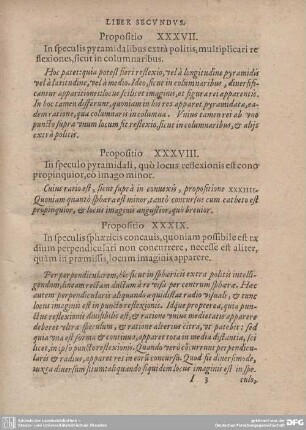 LIBER SECVNDVS.
Propositio XXXVII.
In speculis pyramidalibus extrà politis, multiplicari re
flexiones, sicut in columnaribus.
Hoc patet: quia potest fieri reflexio, vel à longitudine pyramidis
vel à latitudine, vel à medio. Ideo, sicut in columnaribus, diversifi-
cantur apparitiones: locus scilicet imaginis, et figura apparentis in eis.
In hoc tamen differunt, quoniam in his res apparet pyramidata, ea-
dem ratione, qua columnaris in columna. Vnius tamen rei ab uno
puncto supra unum locum fit reflexio, sicut in columnaribus, & alijs
extrà politis.
Propositio XXXVIII.
In speculo pyramidali, quò locus reflexionis est cono
propinquior, eò imago minor.
Cuius ratio est, sicut suprà in convexis, propositione XXXIIII.
Quoniam quantò sphæra est minor, tantò concursus cum catheto est
propinquior, & locus imaginis angustior, quò brevior.
Propositio XXXIX.
In speculis sphæricis concauis, quoniam possibile est ra
dium perpendiculari non concurrere, necesse est aliter,
quàm in præmissis, locum imaginis apparere.
Per perpendicularem, hîc sicut in sphæricis extrà politis intelli-
gendum, lineam rectam ductam à re visa per centrum sphæræ. Hæc
autem perpendicularis aliquando æquidistat radio visuali, & tunc
locus imaginis est in puncto reflexionis. Idque propterea, quia punc-
tus reflexionis divisibilis est, & ratione unius medietatis apparere
deberet ultra speculum, & ratione alterius citra, ut patebit: sed
quia una res est & continua, apparet tota in media distantia, sci-
licet, in ipso puncto reflexionis. Quando verò concurrunt perpendicula-
ris & radius, apparet res in eorum concursu. Quod fit diversimodè,
iuxta diversum situm: aliquando siquidem locus imaginis est in spe-
I 3 culo,
Sächsische Landesbibliothek –
Staats- und Universitätsbibliothek Dresden
gefördert von der
Deutschen Forschungsgemeinschaft
DFG